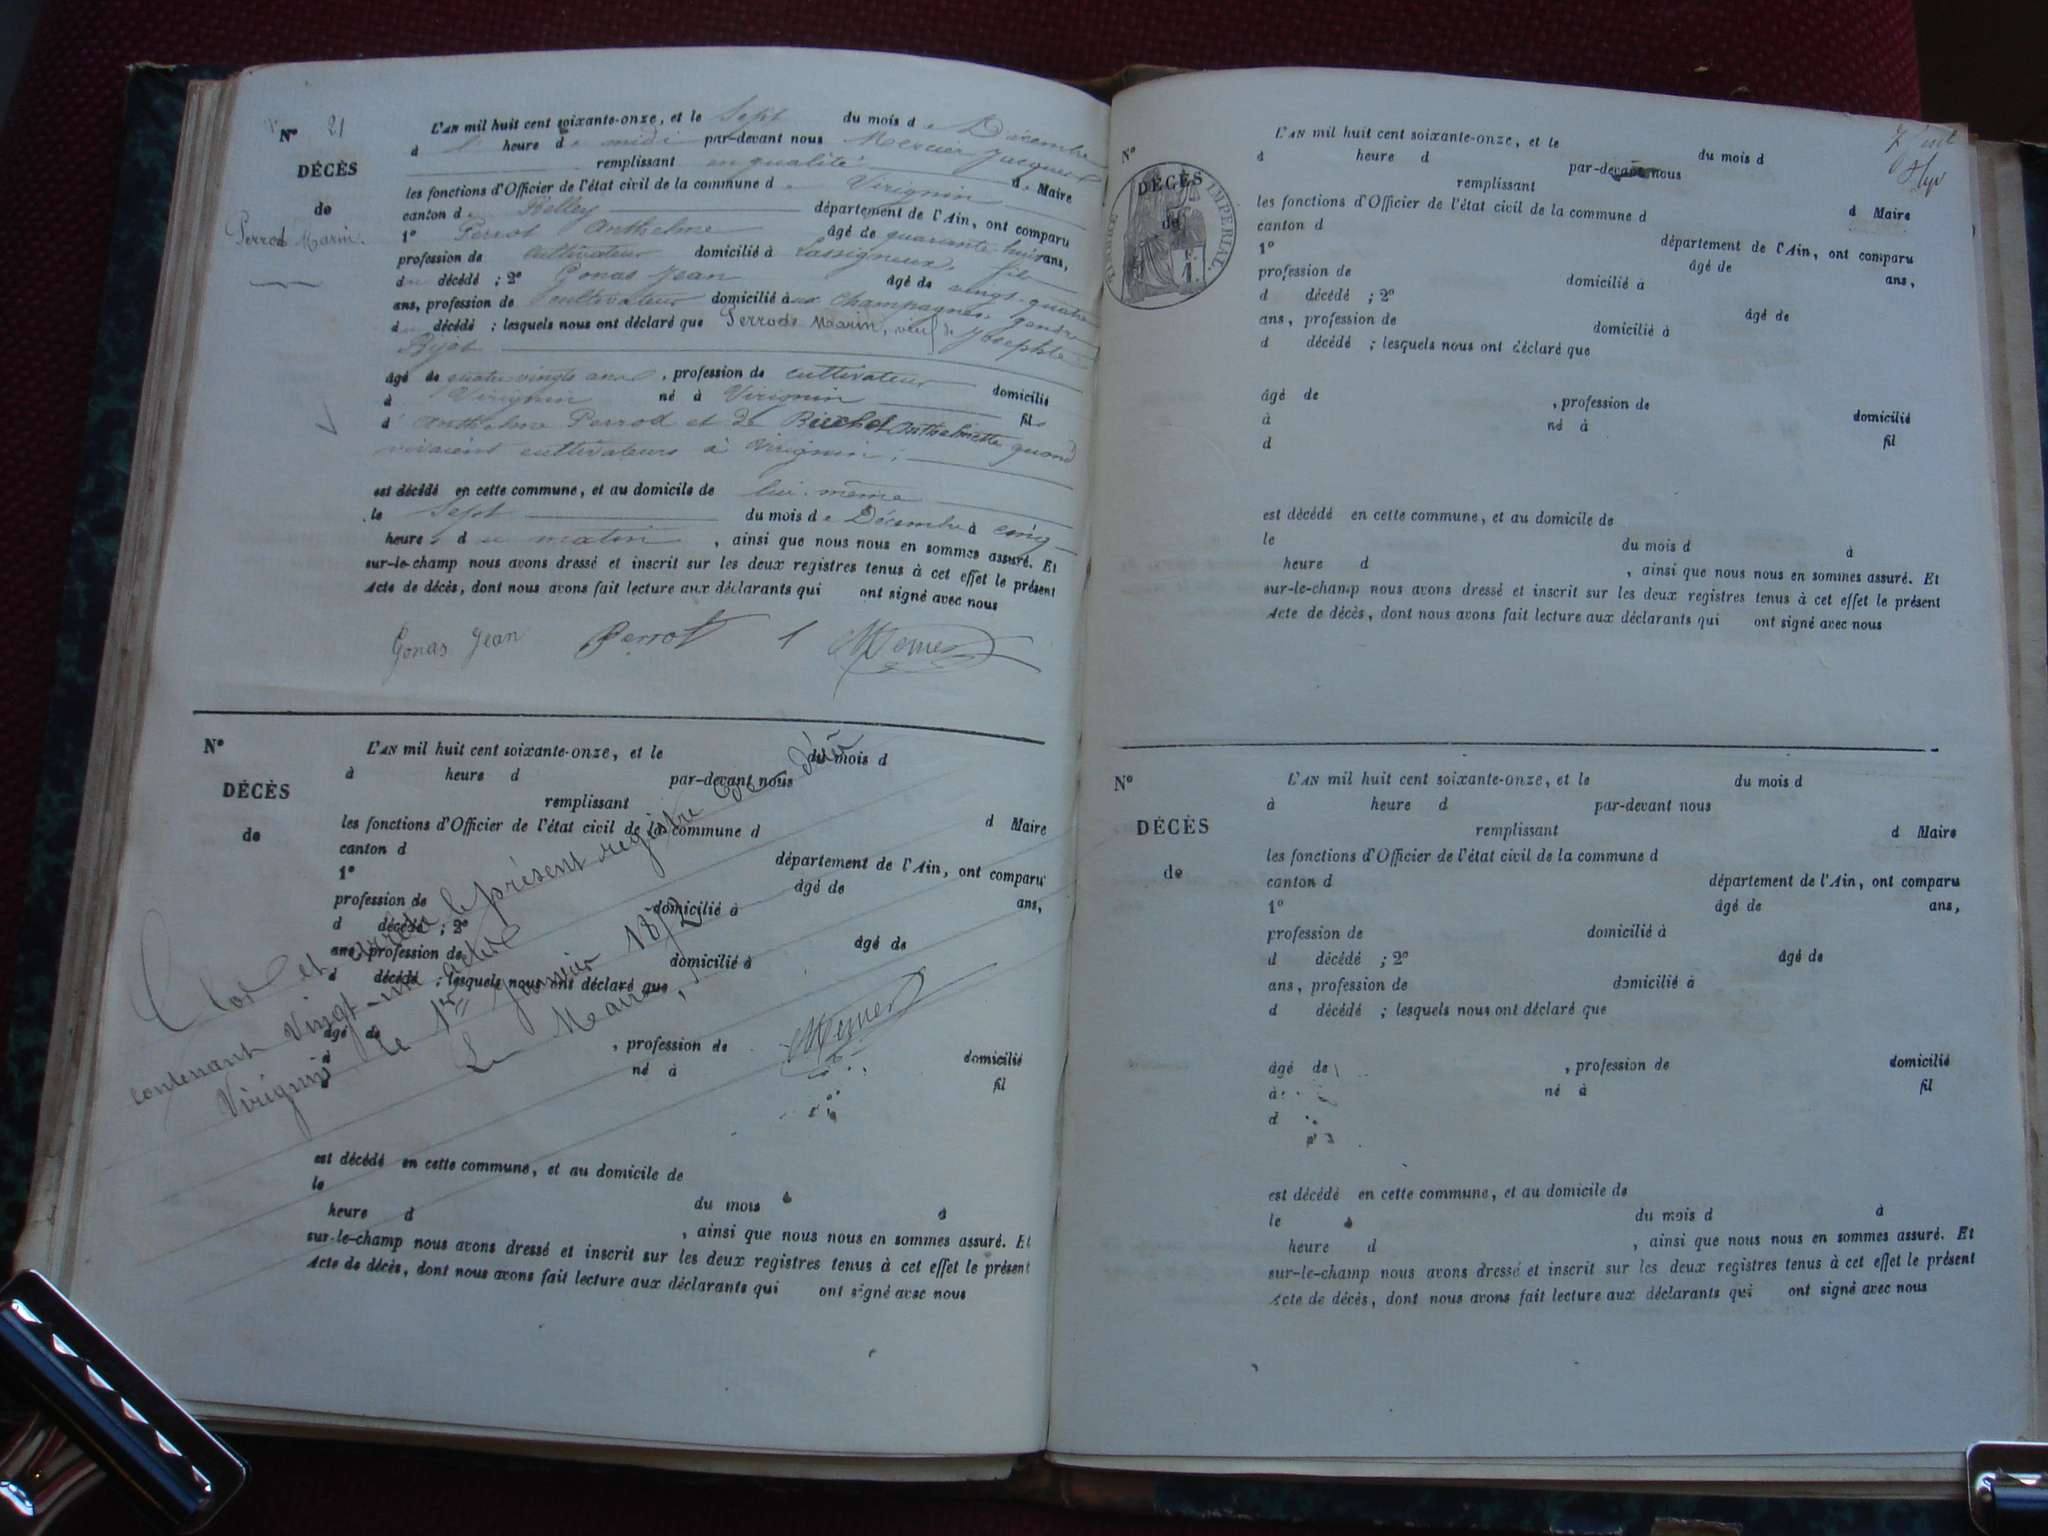 N° 21
DÉCÈS
de
Perrod Marin.
L'AN mil huit cent soixante-onze, et le Sept du mois de Décembre
à heure de midi par-devant nous Mercier Jacques
remplissant en qualité de Maire
les fonctions d'Officier de l'état civil de la commune de Virignin
canton de Belley département de l'Ain, ont comparu
1° Perrot Anthelme âgé de quarante-huit ans,
profession de cultivateur domicilié à Lassigneux, fils
du décédé ; 2° Gonas Jean âgé de vingt-quatre
ans, profession de cultivateur domicilié aux Champagnes, gendre
du décédé ; lesquels nous ont déclaré que Perrod Marin, veuf de Josephte
Bijot
âgé de quatre vingts ans, profession de cultivateur domicilié
à Virignin né à Virignin fils
d'Anthelme Perrod et de Anthelmette quand
vivaient cultivateurs à Virignin ;
est décédé en cette commune, et au domicile de lui-même
le Sept du mois de Décembre à cinq
heures du matin, ainsi que nous nous en sommes assuré. Et
sur-le-champ nous avons dressé et inscrit sur les deux registres tenus à cet effet le présent
Acte de décès, dont nous avons fait lecture aux déclarants qui ont signé avec nous
Gonas Jean Perrot
N°
DÉCÈS
de
L'AN mil huit cent soixante-onze, et le du mois d
à heure d par-devant nous
remplissant d Maire
les fonctions d'Officier de l'état civil de la commune d
canton d département de l'Ain, ont comparu
1° âgé de ans,
profession de domicilié à
d décédé ; 2° âgé de
ans, profession de domicilié à
d décédé ; lesquels nous ont déclaré que
âgé de , profession de domicilié
à né à fil
d
est décédé en cette commune, et au domicile de
le du mois à
heure d , ainsi que nous nous en sommes assuré. Et
sur-le-champ nous avons dressé et inscrit sur les deux registres tenus à cet effet le présent
Acte de décès, dont nous avons fait lecture aux déclarants qui ont signé avec nous
Clos et arrêté le présent registre de décès
contenant Vingt-un actes
Virignin le 1er Janvier 1872
Le Maire,
N°
DÉCÈS
de
TIMBRE IMPÉRIAL
L'AN mil huit cent soixante-onze, et le du mois d
à heure d par-devant nous
remplissant d Maire
les fonctions d'Officier de l'état civil de la commune d
canton d département de l'Ain, ont comparu
1° âgé de ans,
profession de domicilié à
d décédé ; 2° âgé de
ans, profession de domicilié à
d décédé ; lesquels nous ont déclaré que
âgé de , profession de domicilié
à né à fil
d
est décédé en cette commune, et au domicile de
le du mois d à
heure d , ainsi que nous nous en sommes assuré. Et
sur-le-champ nous avons dressé et inscrit sur les deux registres tenus à cet effet le présent
Acte de décès, dont nous avons fait lecture aux déclarants qui ont signé avec nous
N°
DÉCÈS
de
L'AN mil huit cent soixante-onze, et le du mois d
à heure d par-devant nous
remplissant d Maire
les fonctions d'Officier de l'état civil de la commune d
canton d département de l'Ain, ont comparu
1° âgé de ans,
profession de domicilié à
d décédé ; 2° âgé de
ans, profession de domicilié à
d décédé ; lesquels nous ont déclaré que
âgé de , profession de domicilié
à né à fil
d
est décédé en cette commune, et au domicile de
le du mois d à
heure d , ainsi que nous nous en sommes assuré. Et
sur-le-champ nous avons dressé et inscrit sur les deux registres tenus à cet effet le présent
Acte de décès, dont nous avons fait lecture aux déclarants qui ont signé avec nous